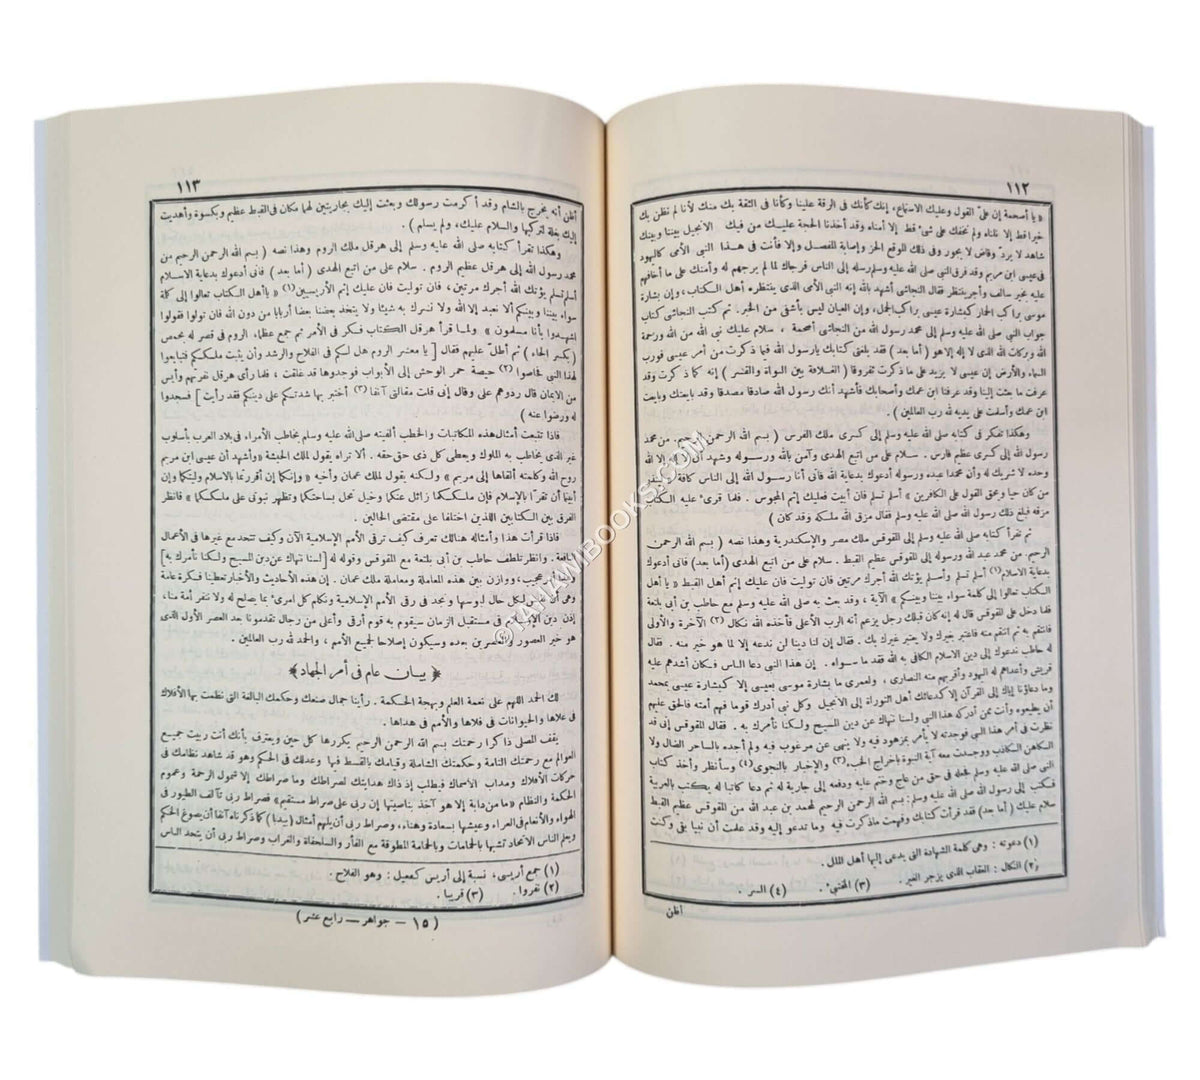 ١١٢
« يا أصحمة إن علىّ القول وعليك الاستماع، إنك كأنك فى الرقة علينا وكأنا فى الثقة بك منك لأنا لم نظن بك
خيرا قط إلا نلناه ولم نخفك على شىء قط إلا أمناه وقد أخذنا الحجة عليك من فيك الانجيل بيننا وبينك
شاهد لا يرد وقاض لا يجور وفى ذلك الموقع الحز وإصابة المفصل وإلا فأنت فى هذا النبى الأمى كاليهود
فى عيسى ابن مريم وقد فرق النبى صلى الله عليه وسلم رسله إلى الناس فرجاك لما لم يرجهم له وأمنك على ما أخافهم
عليه بخير سالف وأجر ينتظر فقال النجاشى أشهد بالله إنه النبى الأمى الذى ينتظره أهل الكتاب، وإن بشارة
موسى براكب الحمار كبشارة عيسى براكب الجمل، وإن العيان ليس بأشفى من الخبر. ثم كتب النجاشى كتاب
جواب النبى صلى الله عليه وسلم إلى محمد رسول الله من النجاشى أصحمة ، سلام عليك نبى الله من الله ورحمة
الله وبركات الله الذى لا إله إلا هو ( أما بعد ) فقد بلغنى كتابك يا رسول الله فيما ذكرت من أمر عيسى فورب
السماء والأرض إن عيسى لا يزيد على ما ذكرت تفروقا ( العلاقة بين النواة والقشر ) إنه كما ذكرت وقد
عرفت ما بعثت إلينا وقد عرفنا ابن عمك وأصحابك فأشهد أنك رسول الله صادقا مصدقا وقد بايعتك وبايعت
ابن عمك وأسلمت على يديه لله رب العالمين ) .
وهكذا تفكر فى كتابه صلى الله عليه وسلم إلى كسرى ملك الفرس ( بسم الله الرحمن الرحيم. من محمد
رسول الله إلى كسرى عظيم فارس . سلام على من اتبع الهدى وآمن بالله ورسوله وشهد أن لا إله إلا الله
وحده لا شريك له وأن محمدا عبده ورسوله أدعوك بدعاية الله فانى أنا رسول الله إلى الناس كافة لينذر
من كان حيا ويحق القول على الكافرين » أسلم تسلم فان أبيت فعليك إثم المجوس . فلما قرىء عليه الكتاب
مزقه فبلغ ذلك رسول الله صلى الله عليه وسلم فقال مزق الله ملكه وقد كان )
ثم نقرأ كتابه صلى الله عليه وسلم إلى المقوقس ملك مصر والإسكندرية وهذا نصه ( بسم الله الرحمن
الرحيم. من محمد عبد الله ورسوله إلى المقوقس عظيم القبط . سلام على من اتبع الهدى (أما بعد) فانى أدعوك
بدعاية الاسلام(١) أسلم تسلم وأسلم يؤتك الله أجرك مرتين فان توليت فان عليك إثم أهل القبط « يا أهل
الكتاب تعالوا إلى كلمة سواء بيننا وبينكم » الآية ، وقد بعث به صلى الله عليه وسلم مع حاطب بن أبى بلتعة
فلما دخل على المقوقس قال له إنه كان قبلك رجل يزعم أنه الرب الأعلى فأخذه الله نكال (٢) الآخرة والأولى
فانتقم به ثم انتقم منه فاعتبر بغيرك ولا يعتبر غيرك بك . فقال إن لنا دينا لن ندعه إلا لما هو خير منه . فقال
له حاطب ندعوك إلى دين الاسلام الكافى به الله فقد ما سواه . إن هذا النبى دعا الناس فكان أشدهم عليه
قريش وأعداهم له اليهود وأقربهم منه النصارى ، ولعمرى ما بشارة موسى بعيسى إلا كبشارة عيسى بمحمد
وما دعاؤنا إياك إلى القرآن إلا كدعائك أهل التوراة إلى الانجيل وكل نبى أدرك قوما فهم أمته فالحق عليهم
أن يطيعوه وأنت ممن أدركه هذا النبى ولسنا ننهاك عن دين المسيح ولكنا نأمرك به . فقال المقوقس إنى قد
نظرت فى أمر هذا النبى فوجدته لا يأمر بمزهود فيه ولا ينهى عن مرغوب فيه ولم أجده بالساحر الضال ولا
الكاهن الكاذب ووجدت معه آية النبوة باخراج الخبء(٣) والإخبار بالنجوى(٤) وسأنظر وأخذ كتاب
النبى صلى الله عليه وسلم لجعله فى حق من عاج وختم عليه ودفعه إلى جارية له ثم دعا كاتبا له يكتب بالعربية
فكتب إلى رسول الله صلى الله عليه وسلم : بسم الله الرحمن الرحيم لمحمد بن عبد الله من المقوقس عظيم القبط
سلام عليك ( أما بعد ) فقد قرأت كتابك وفهمت ما ذكرت فيه وما تدعو إليه وقد علمت أن نبيا بقى وكنت
(١) دعوته : وهى كلمة الشهادة التى يدعى إليها أهل الملل .
(٢) النكال : العقاب الذى يزجر الغير . (٣) المخبى . (٤) السر .
أظن
١١٣
أظن أنه يخرج بالشام وقد أكرمت رسولك وبعثت إليك بجاريتين لهما مكان فى القبط عظيم وبكسوة وأهديت
إليك بغلة لتركبها والسلام عليك، ولم يسلم ) .
وهكذا تقرأ كتابه صلى الله عليه وسلم إلى هرقل ملك الروم وهذا نصه ( بسم الله الرحمن الرحيم من
محمد رسول الله إلى هرقل عظيم الروم . سلام على من اتبع الهدى ( أما بعد ) فانى أدعوك بدعاية الاسلام
أسلم تسلم يؤتك الله أجرك مرتين، فان توليت فان عليك إثم الأريسيين(١) « يا أهل الكتاب تعالوا إلى كلة
سواء بيننا وبينكم ألا نعبد إلا الله ولا نشرك به شيئا ولا يتخذ بعضنا بعضا أربابا من دون الله فان تولوا فقولوا
اشهدوا بأنا مسلمون » ولما قرأ هرقل الكتاب فكر فى الأمر ثم جمع عظماء الروم فى قصر له بحمص
( بكسر الحاء ) ثم أطل عليهم فقال [ يا معشر الروم هل لكم فى الفلاح والرشد وأن يثبت ملككم فتبايعوا
لهذا النبى فحاصوا (٢) حيصة حمر الوحش إلى الأبواب فوجدوها قد غلقت ، فلما رأى هرقل نفرتهم وأيس
من الايمان قال ردوهم على وقال إنى قلت مقالتى آنفا (٣) أختبر بها شدتكم على دينكم فقد رأيت ] فسجدوا
له ورضوا عنه )
فاذا تتبعت أمثال هذه المكاتبات والخطب ألفيته صلى الله عليه وسلم يخاطب الأمراء فى بلاد العرب بأسلوب
غير الذى يخاطب به الملوك ويعطى كل ذى حق حقه . ألا تراه يقول لملك الحبشة «وأشهد أن عيسى ابن مريم
روح الله وكلمته ألقاها إلى مريم » ولكنه يقول لملك عمان وأخيه «وإنكما إن أقررتما بالاسلام وليتكما وإن
أبيتما أن تقرا بالإسلام فإن ملككما زائل عنكما وخيل تحل بساحتكما وتظهر نبوتى على ملككما » فانظر
الفرق بين الكتابين اللذين اختلفا على مقتضى الحالين .
فاذا قرأت هذا وأمثاله هنالك تعرف كيف ترقى الأمم الإسلامية الآن وكيف تتحد مع غيرها فى الأعمال
النافعة . وانظر تلطف حاطب بن أبى بلتعة مع المقوقس وقوله له [لسنا ننهاك عن دين المسيح ولكنا نأمرك به]
عجيب، ووازن بين هذه المعاملة ومعاملة ملك عمان. إن هذه الأحاديث والأخبار تعطينا فكرة عامة
وهى أن لكل حال لبوسها ونجد فى رقى الأمم الإسلامية ونكلم كل امرىء بما يصلح له ولا ننفر أمة منا،
إذن دين الإسلام فى مستقبل الزمان سيقوم به قوم أرقى وأعلى من رجال تقدمونا جد العصر الأول الذى
هو خير العصور والعصر بعده وسيكون إصلاحا لجميع الأمم ، والحمد لله رب العالمين .
﴿ بيان عام فى أمر الجهاد ﴾
لك الحمد اللهم على نعمة العلم وبهجة الحكمة . رأينا جمال صنعك وحكمك البالغة التى نظمت بها الأفلاك
فى علاها والحيوانات فى فلاها والأمم فى هداها .
يقف المصلى ذاكرا رحمتك بسم الله الرحمن الرحيم يكررها كل حين ويعترف بأنك أنت ربيت جميع
العوالم مع رحمتك التامة وحكمتك الشاملة وقيامك بالقسط فيها وعدلك فى الحكم وهو قد شاهد نظامك فى
حركات الأفلاك ومداب الاسماك فيطلب إذ ذاك هدايتك لصراطك وما صراطك إلا شمول الرحمة وعموم
الحكمة والنظام «ما من دابة إلا هو آخذ بناصيتها إن ربى على صراط مستقيم» فصراط ربى تآلف الطيور فى
الهواء والأنعام فى العراء وعيشها بسعادة وهناء، وصراط ربى أن يلهم أمثال (بيدبا) كما ذكرناه آنفا أن يصوغ الحكم
ويعلم الناس الاتحاد تشبها بالحمامات وبالحمامة المطوقة مع الفأر والسلحفاة والغراب وصراط ربى أن يتحد الناس
(١) جمع أريسى، نسبة إلى أريس كفعيل : وهو الفلاح .
(٢) نفروا . (٣) قريبا .
( ١٥ - جواهر - رابع عشر )
© TAHAWIBOOKS.COM